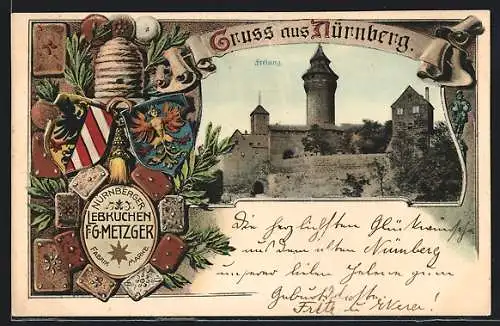 Gruss aus Nürnberg.
Freiung.
NÜRNBERGER
LEBKUCHEN
F.G. METZGER
FABRIK MARKE
Die herzlichsten Glückwünsche
aus dem alten Nürnberg
unserer lieben Helene zum
Geburtstag
Fritz u.